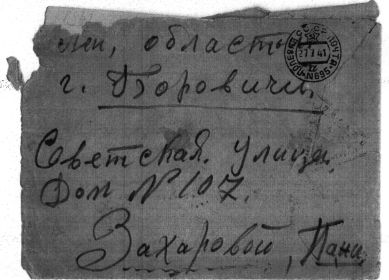 лен, область
г. Боровичи
Советская. улица.
Дом № 107.
Захаровой, Пане
27 7 41
№695